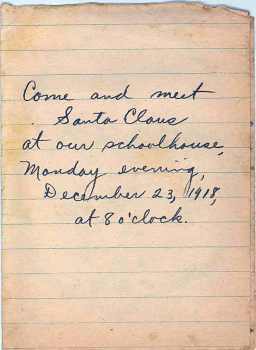 Come and meet
Santa Claus
at our schoolhouse,
Monday evening,
December 23, 1918,
at 8 o'clock.